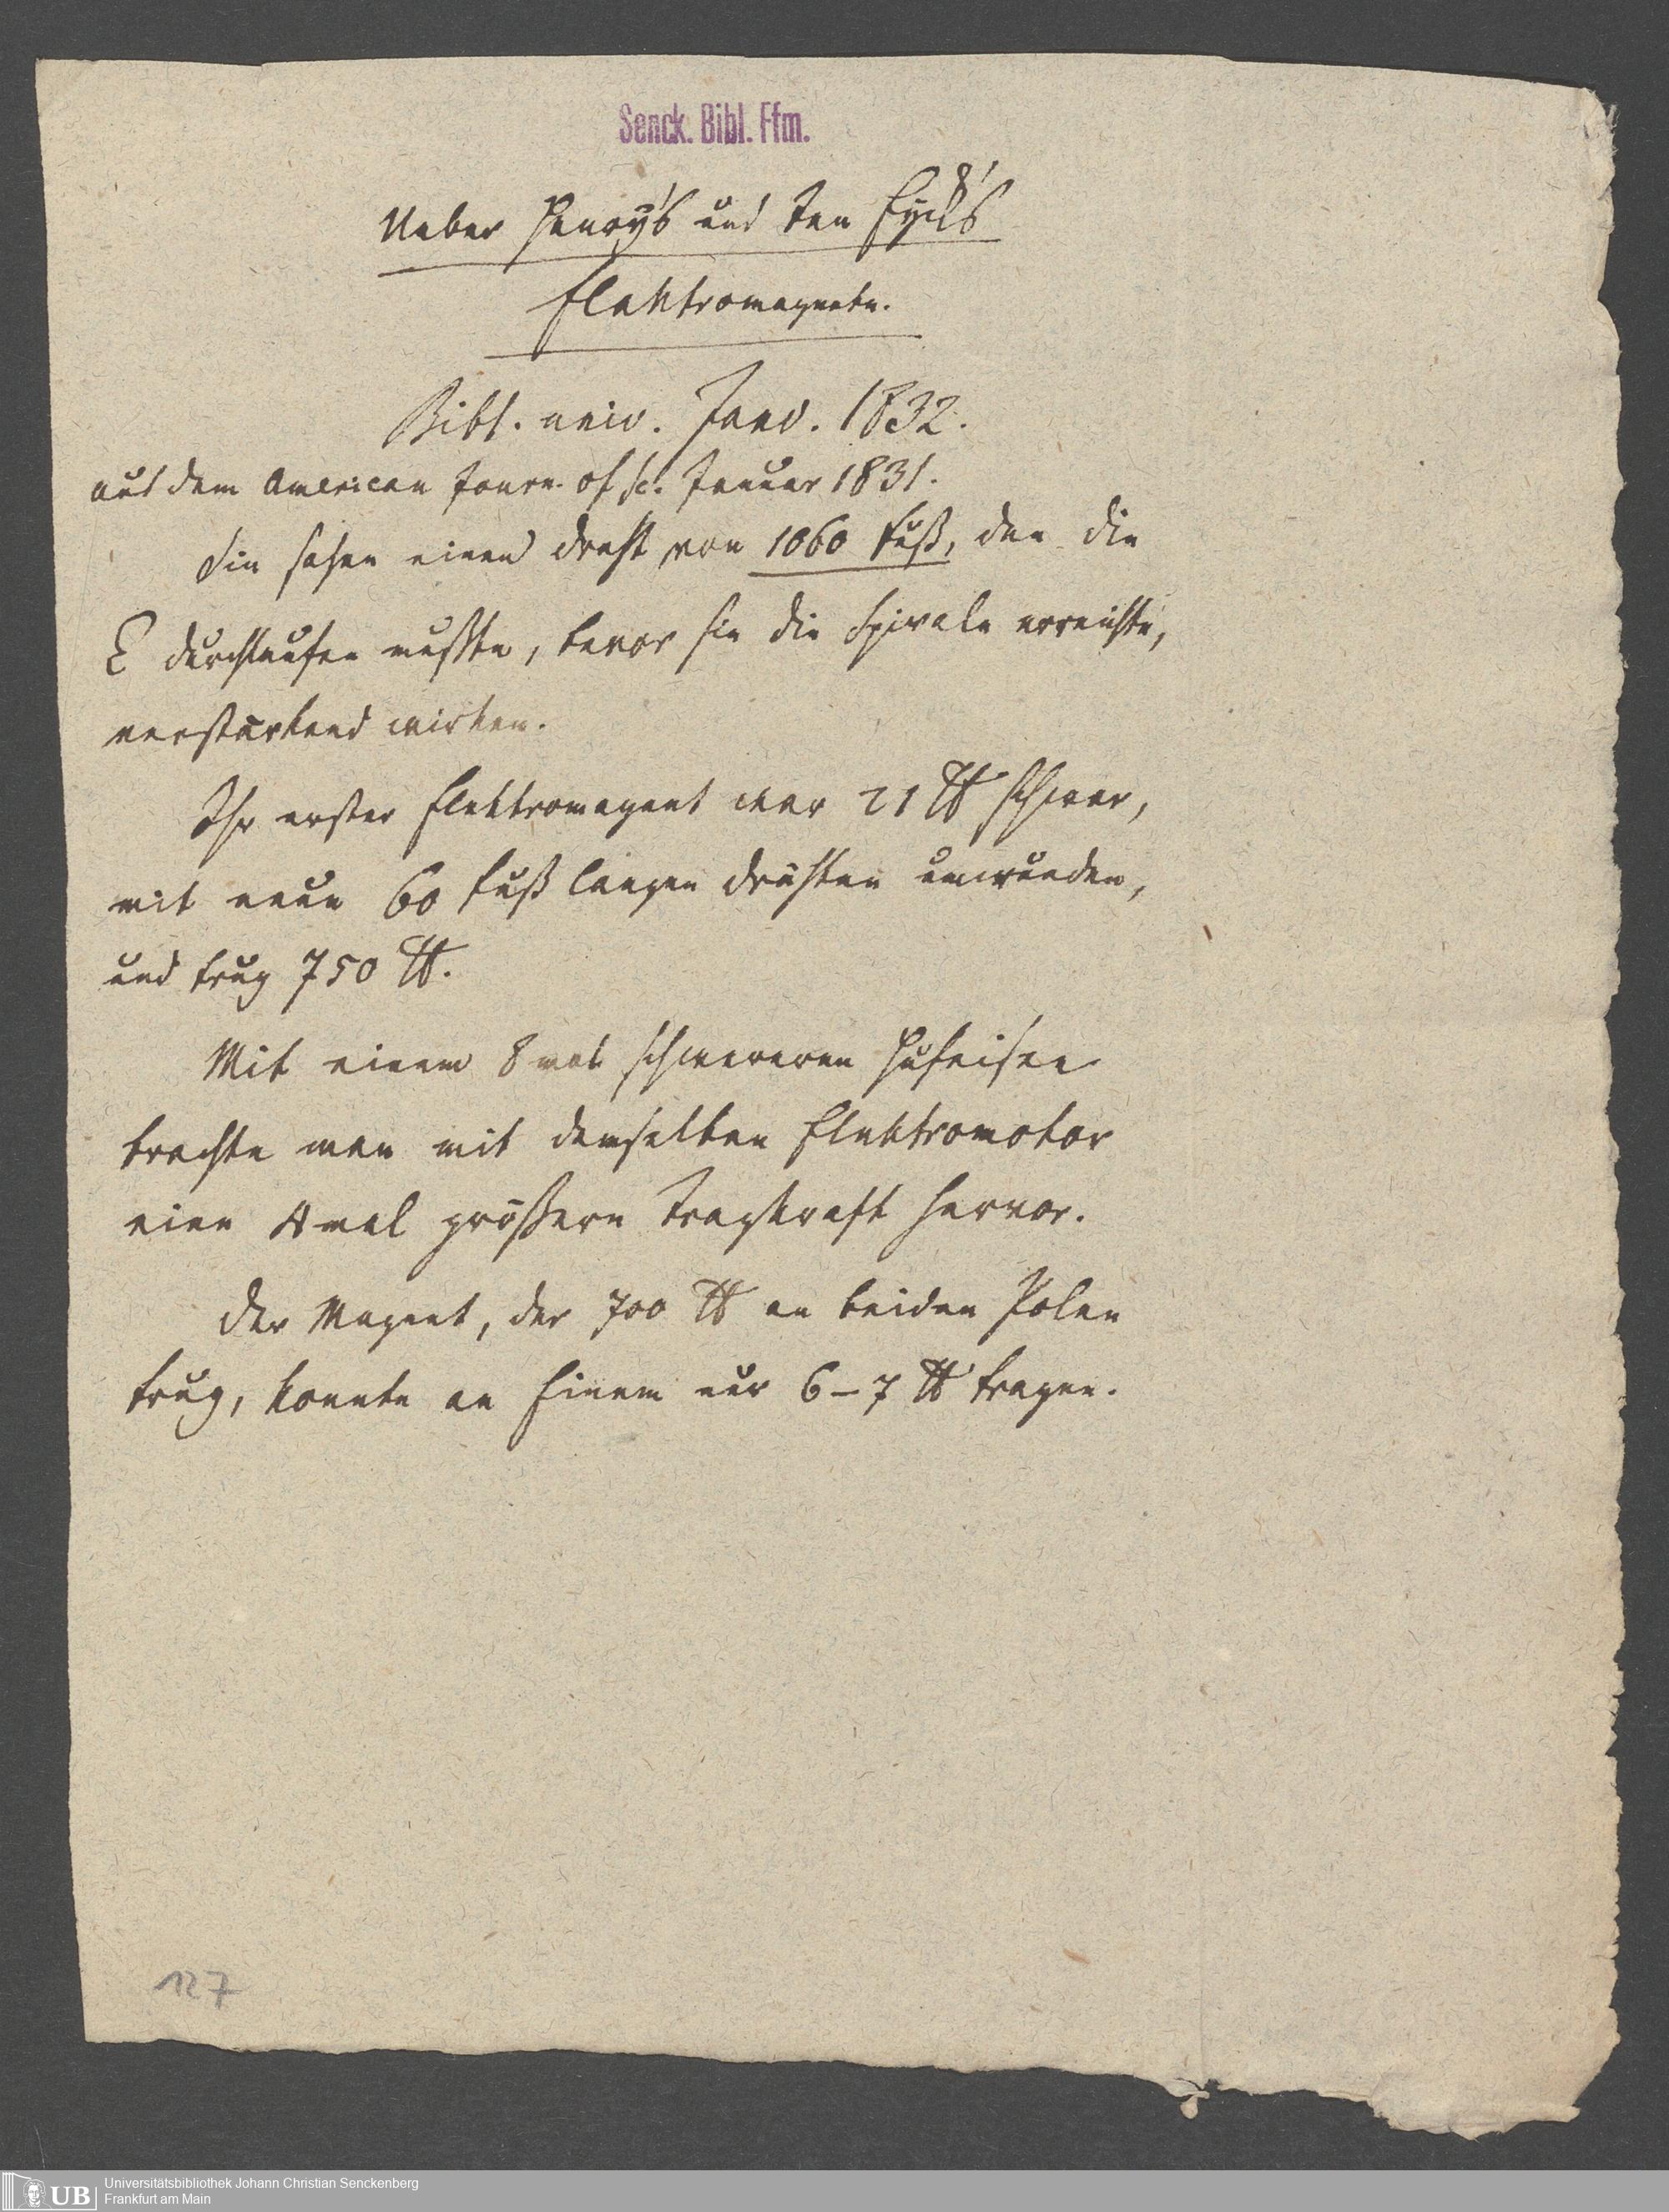 Senck. Bibl. Ffm.
Ueber Henry's und Ten Eyck's
Elektromagnete.
Bibl. univ. Janv. 1832.
aus dem American Journ. of sc. Januar 1831.
Sie sahen einen Draht von 1060 Fuß, den die
E durchlaufen mußte, bevor sie die Spirale erreichte,
verstärkend wirken.
Ihr erster Elektromagnet war 21 ℔ schwer,
mit neun 60 Fuß langen Drähten umwunden,
und trug 750 ℔.
Mit einem 8 mal schwereren Hufeisen
brachte man mit demselben Elektromotor
eine 4 mal größere Tragkraft hervor.
Der Magnet, der 700 ℔ an beiden Polen
trug, konnte an Einem nur 6–7 ℔ tragen.
127
UB
Universitätsbibliothek Johann Christian Senckenberg
Frankfurt am Main